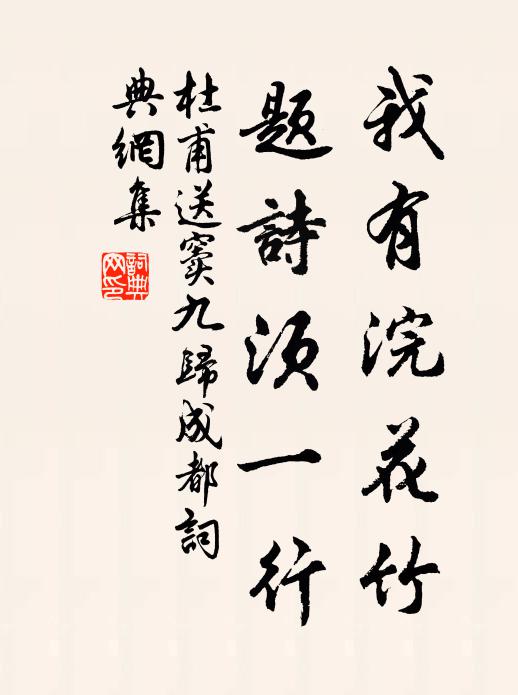 我有浣花竹
題詩須一行
杜甫送竇九歸成都詞
典網集
詞典網印